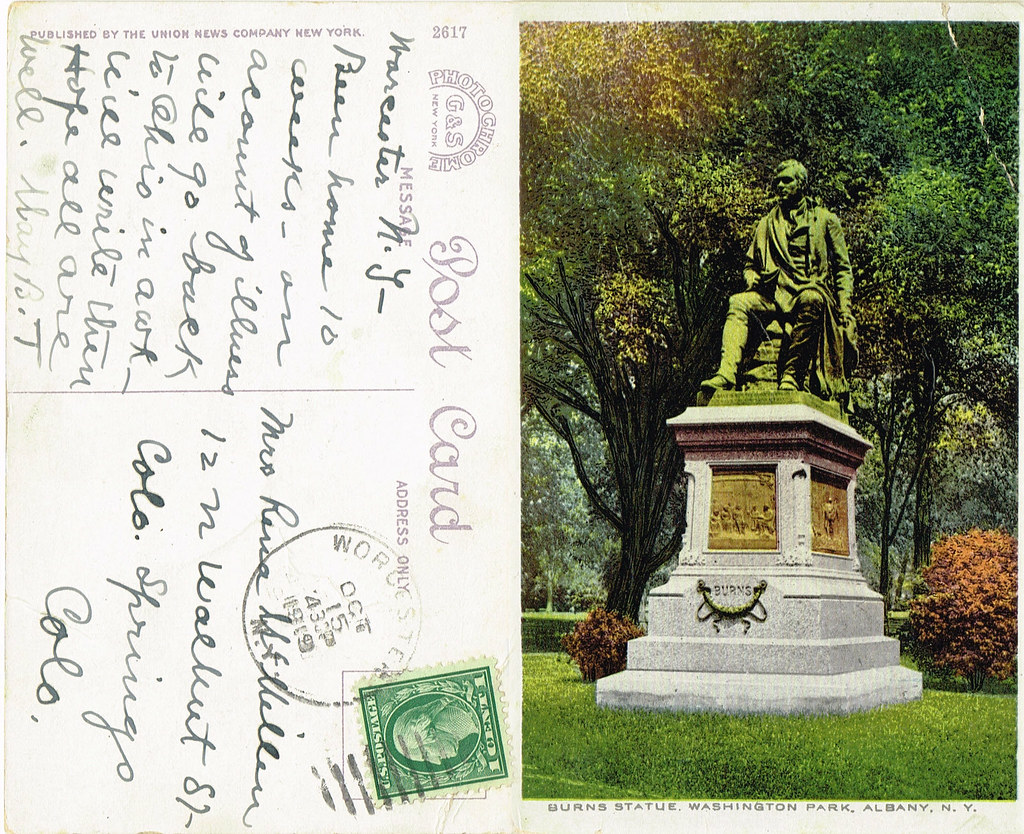 PUBLISHED BY THE UNION NEWS COMPANY NEW YORK.
2617
PHOTOCHROME
G&S
NEW YORK
Post Card
MESSAGE
ADDRESS ONLY
Worcester N.Y-
Been home 10
weeks - on
account of illness
will go back
to Ohio in a wk-
will write then
Hope all are
well. May B.T
Mrs Rosa
12 N Walnut St-
Colo. Springs
Colo.
WORCESTER
OCT
15
N.
BURNS
BURNS STATUE, WASHINGTON PARK, ALBANY, N. Y.